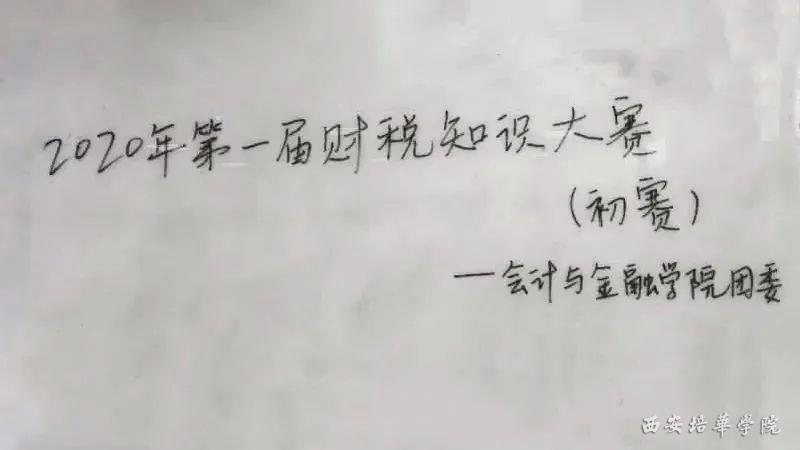 2020年第一届财税知识大赛
(初赛)
—会计与金融学院团委
西安培華学院